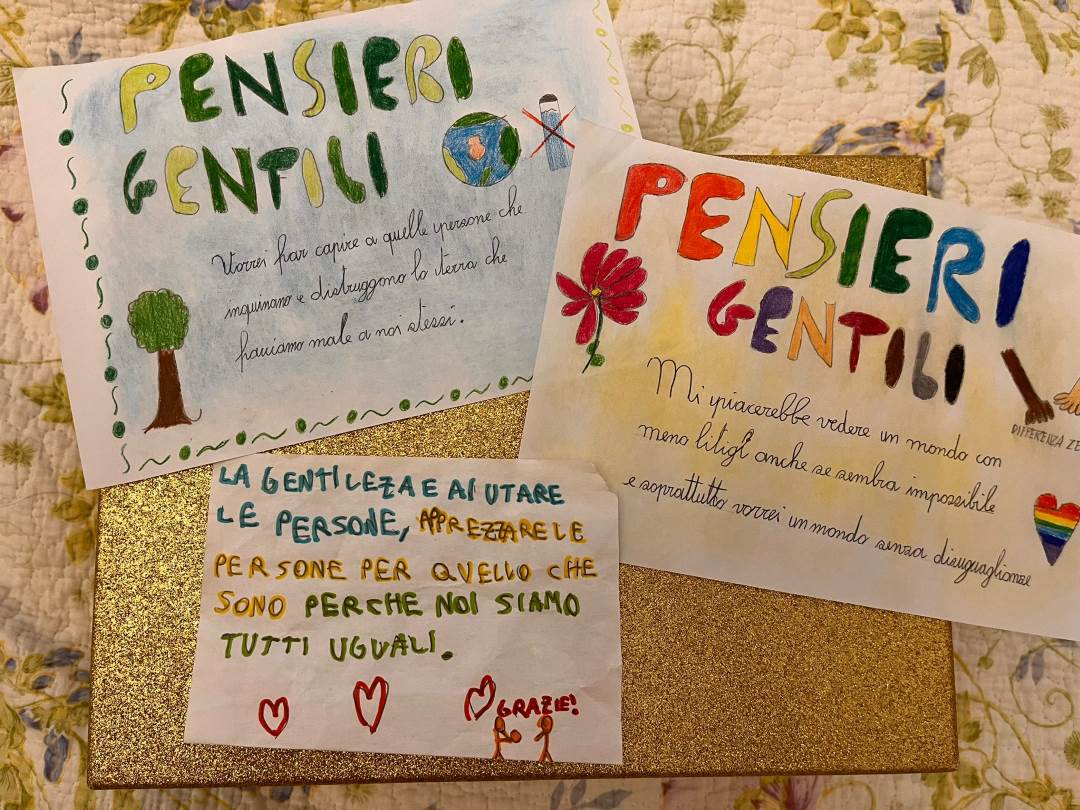 PENSIERI
GENTILI
Vorrei far capire a quelle persone che
inquinano e distruggono la terra che
facciamo male a noi stessi.
PENSIERI
GENTILI
DIFFERENZA ZE
Mi piacerebbe vedere un mondo con
meno litigi anche se sembra impossibile
e soprattutto vorrei un mondo senza disuguaglianze
LA GENTILEZA E AIUTARE
LE PERSONE, APREZZARE LE
PERSONE PER QUELLO CHE
SONO PERCHE NOI SIAMO
TUTTI UGUALI.
GRAZIE!